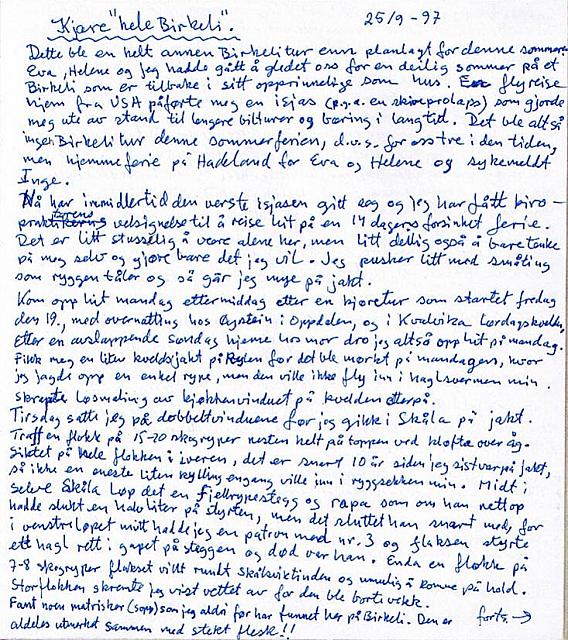 Kjære "hele Birkeli".
25/9-97
Dette ble en helt annen Birkelitur enn planlagt for denne sommer.
Eva, Helene og jeg hadde gått å gledet oss for en deilig sommer på et
Birkeli som er tilbake i sitt opprinnelige som hus. En flyreise
hjem fra USA påførte meg en isjas (p.g.a. en skiveprolaps) som gjorde
meg ute av stand til lengere bilturer og bæring i lang tid. Det ble altså
ingen Birkelitur denne sommerferien, d.v.s. for oss tre i den tiden,
men hjemmeferie på Hadeland for Eva og Helene og sykemeldt
Inge.
Nå har imidlertid den verste isjasen gitt seg og jeg har fått kiro-
praktorens velsignelse til å reise hit på en 14 dagers forsinket ferie.
Det er litt stusselig å være alene her, men litt deilig også å bare tenke
på meg selv og gjøre bare det jeg vil. Jeg pusler litt med småting
som ryggen tåler og så går jeg mye på jakt.
Kom opp hit mandag ettermiddag etter en kjøretur som startet fredag
den 19., med overnatting hos Øystein i Oppdalen, og i Kvalvika lørdagskvelden,
Etter en avslappende søndag hjemme hos mor dro jeg altså opp hit på mandag.
Fikk meg en liten kveldsjakt på for det ble mørkt på mandagen, hvor
jeg jagde opp en enkel rype, men den ville ikke fly inn i haglsvermen min.
Skrapte løsmaling av kjøkkenvinduet på kvelden etterpå.
Tirsdag satte jeg på dobbeltvinduene før jeg gikk i Skåla på jakt.
Traff en flokk på 15-20 skogryper nesten helt på toppen ved kløfta over åg.
Siktet på hele flokken i iveren, det er snart 10 år siden jeg sist var på jakt,
så ikke en eneste liten kylling engang ville inn i ryggsekken min. Midt i
selve Skåla løp det en fjellrypestegg og rapa som om han nettop
hadde slukt en halv liter på styrten, men det sluttet han snart med, for
i venstreløpet mitt hadde jeg en patron med nr. 3 og flaksen styrte
ett hagl rett i gapet på steggen og død var han. Enda en flokk på
7-8 skogryper flakset vilt rundt Skålsviktinden og umulig å komme på hold.
Storflokken skremte jeg visst vettet av for den ble bort vekk.
Fant noen matrisker (sopp) som jeg aldri før har funnet her på Birkeli. Den er
aldeles utmerket sammen med stekt flesk!!
forts. →